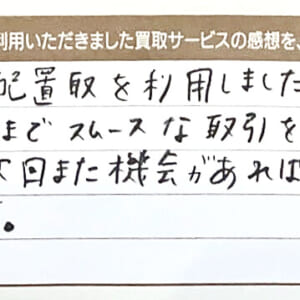 利用いただきました買取サービスの感想を、
配置取を利用しました
までスムースな取引を
回また機会があれば
。